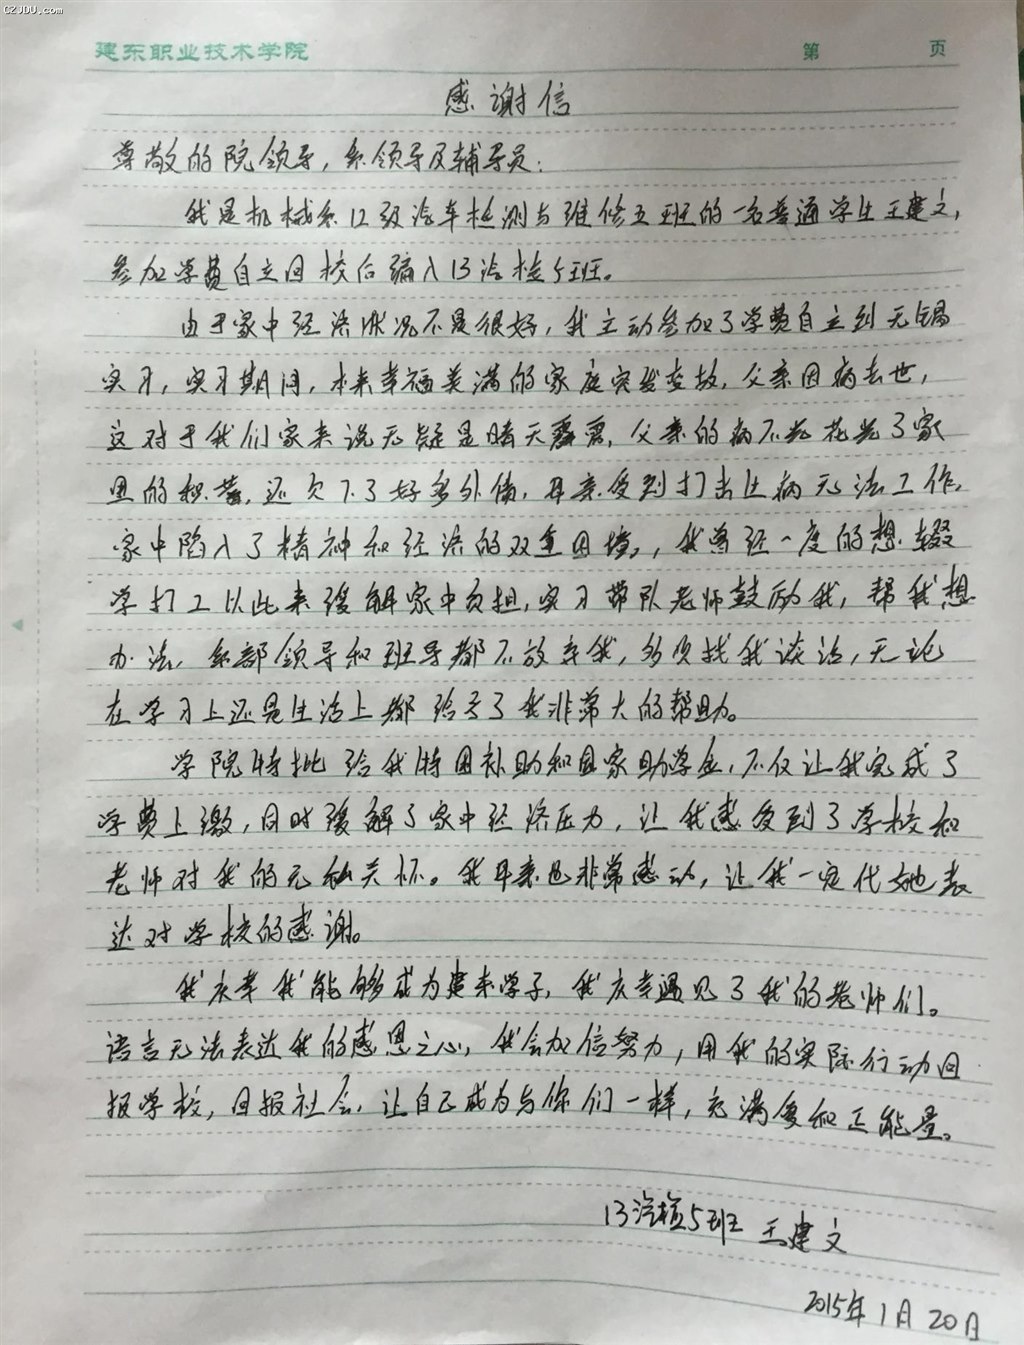 CZJDU.com
建东职业技术学院 第 页
感谢信
尊敬的院领导，系领导及辅导员：
我是机械系12级汽车检测与维修五班的一名普通学生王建文，
参加学费自立回校后编入13汽检5班。
由于家中经济状况不是很好，我主动参加了学费自立到无锡
实习，实习期间，本来幸福美满的家庭突发变故，父亲因病去世，
这对于我们家来说无疑是晴天霹雳，父亲的病不光花光了家
里的积蓄，还欠下了好多外债，母亲受到打击让病无法工作，
家中陷入了精神和经济的双重困境，我曾经一度的想辍
学打工以此来缓解家中负担，实习带队老师鼓励我，帮我想
办法，系部领导和班导都不放弃我，多次找我谈话，无论
在学习上还是生活上都给予了我非常大的帮助。
学院特批给我特困补助和国家助学金，不仅让我完成了
学费上缴，同时缓解了家中经济压力，让我感受到了学校和
老师对我的无私关怀。我母亲也非常感动，让我一定代她表
达对学校的感谢。
我庆幸我能够成为建东学子，我庆幸遇见了我的老师们。
语言无法表达我的感恩之心，我会加倍努力，用我的实际行动回
报学校，回报社会，让自己成为与你们一样，充满爱和正能量。
13汽检5班 王建文
2015年1月20日